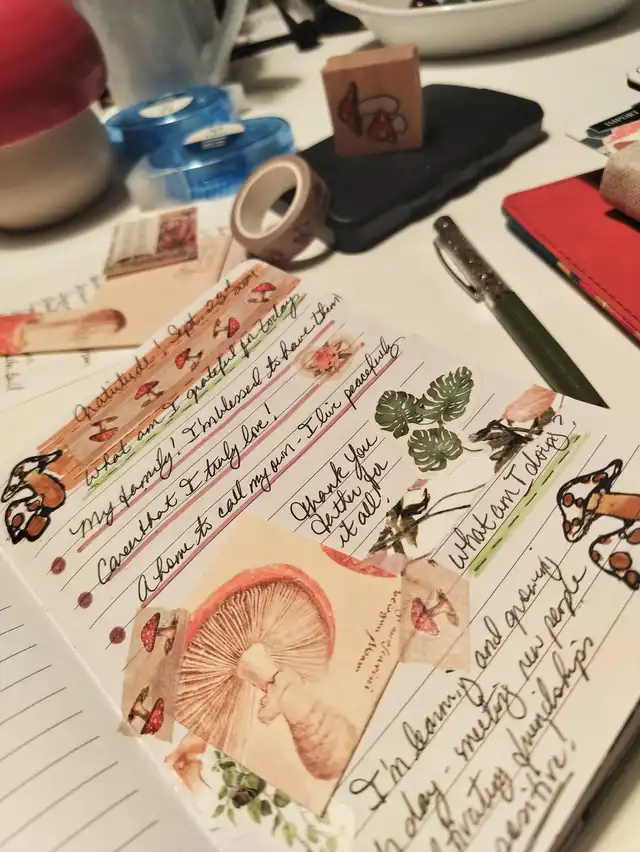 Gratitude! Sept. 23rd
What am I grateful for today
My family! I'm blessed to have them
Career that I truly love!
A home to call my own - I live peacefully
Thank You
Father for
it all!
What am I doing?
I'm learning and growing
day - meeting new people
friendships
positive!
IMPORT